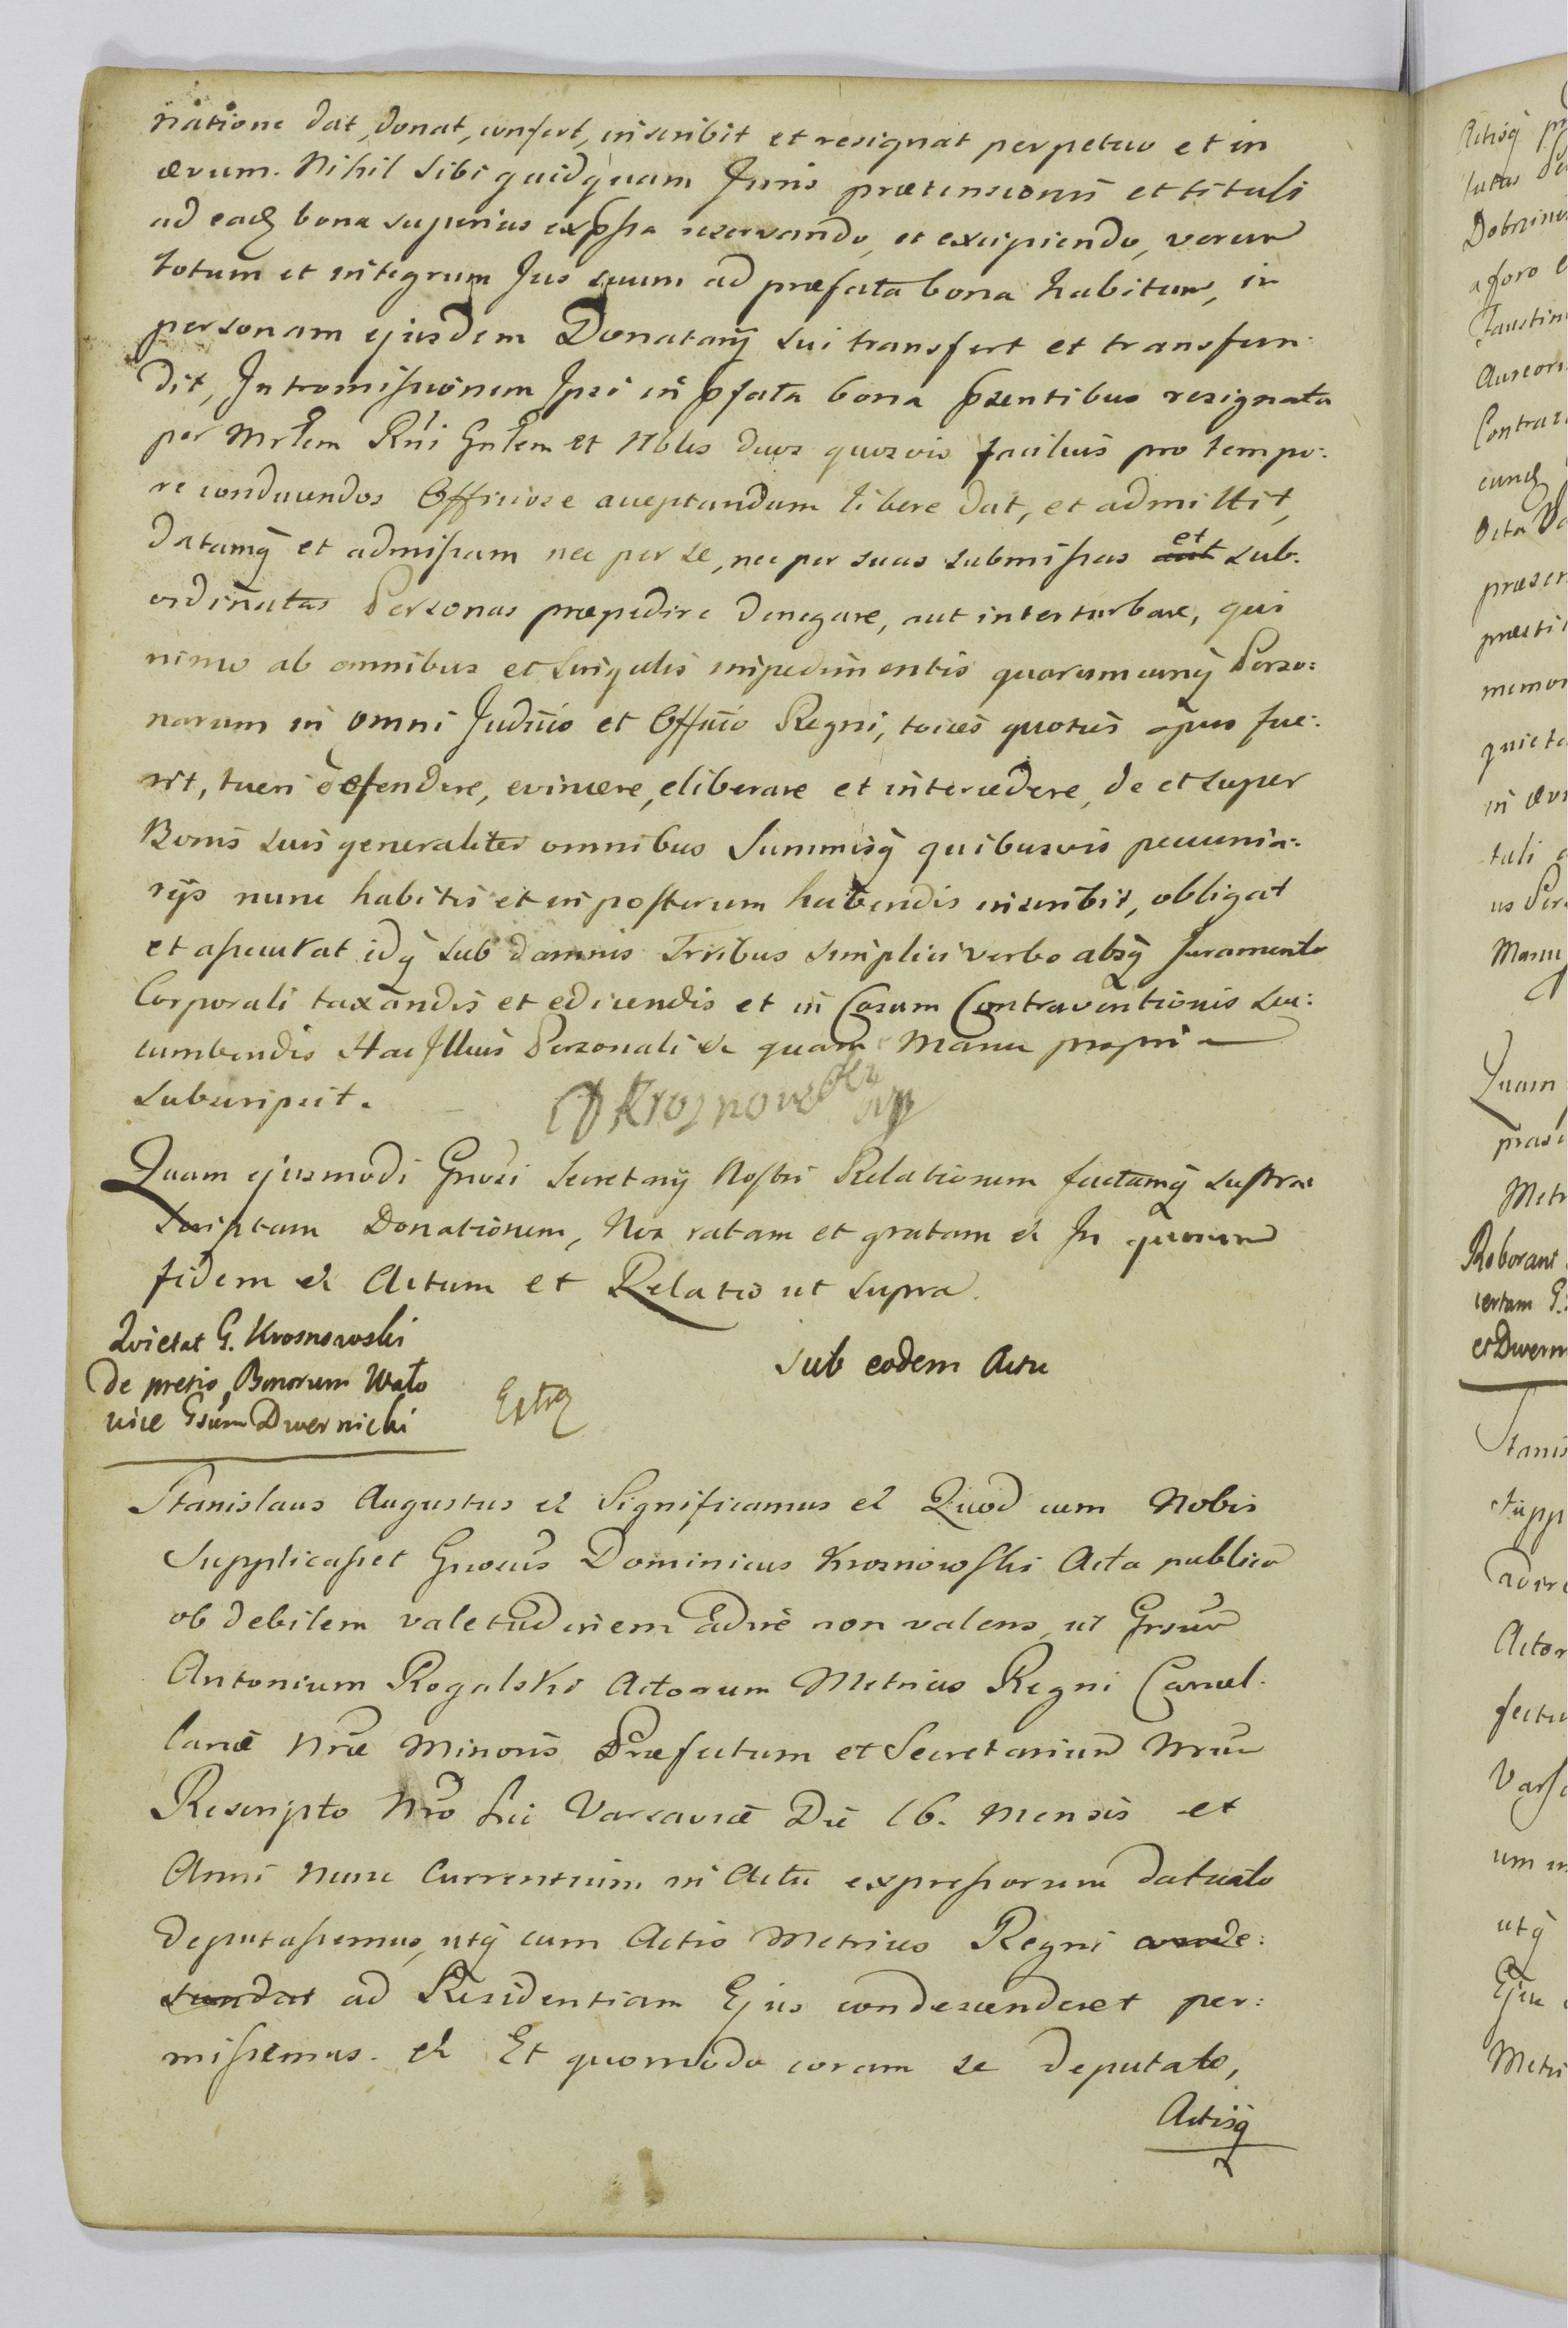 natione dat, donat, confert, inscribit et resignat perpetuo et in
ævum. Nihil sibi quidquam Juris prætensionis et tituli
ad eadᶎ bona superius exp̄ssa reservando, et excipiendo, verum
totum et integrum Jus suum ad præfata bona habitum, in
personam ejusdem Donatarij sui transfert et transfun-
dit, Intromissionem Ipsi in p̄fata bona p̄sentibus resignata
per Mrlem Rñi Gnlem et Nbles duos quosvis facilius pro tempo:
re conducendos Officiose acceptandam libere dat, et admittit,
datamq̨ et admissam nec per se, nec per suas submissas aut et sub-
ordinatas Personas præpedire denegare, aut interturbare, qui
nimo ab omnibus et singulis impedimentis quarumcunq̨ Perso:
narum in omni Judicio et Officio Regni, toties quoties opus fue:
rit, tueri defendere, evincere, eliberare et intercedere, de et super
Bonis suis generaliter omnibus Summisq̨ quibusvis pecunia:
rijs nunc habitis et in posterum habendis inscribit, obligat
et assecurat idq̨ sub damnis Terribus simplici verbo absq̨ Juramento
Corporali taxandis et edicendis et in Casum Contraventionis suc:
cumbendis Hac Illius Personali &c quam Manu propria
subscripsit.
Krosnowski mp
Quam ejusmodi Gnosi Secretarij Nostri Relationem factamq̨ supra
scriptam Donationem, Nos ratam et gratam &c In quorum
fidem &c Actum et Relatio ut supra.
Quietat G. Krosnowski
de pretio Bonorum Wało
wice Gsum Dwernicki
Extrᶎ
Sub eodem Actu
Stanislaus Augustus &c Significamus &c Quod cum Nobis
Supplicasset Gnosus Dominicus Krosnowski Acta publica
ob debilem valetudinem adire non valens, ut Gnsum
Antonium Rogalski Actorum Metrices Regni Cancel-
lariæ Nræ Minoris Præfectum et Secretarium Nrum
Rescripto Nro hic Varsaviæ Die 16. Mensis et
Anni nunc Currentium in Actu expressorum datualo
deputassemus, utq̨ cum Actis Metrices Regni
ad Residentiam Ejus condescenderet per:
missemus. &c Et quomodo coram se deputato,
Actisq̨